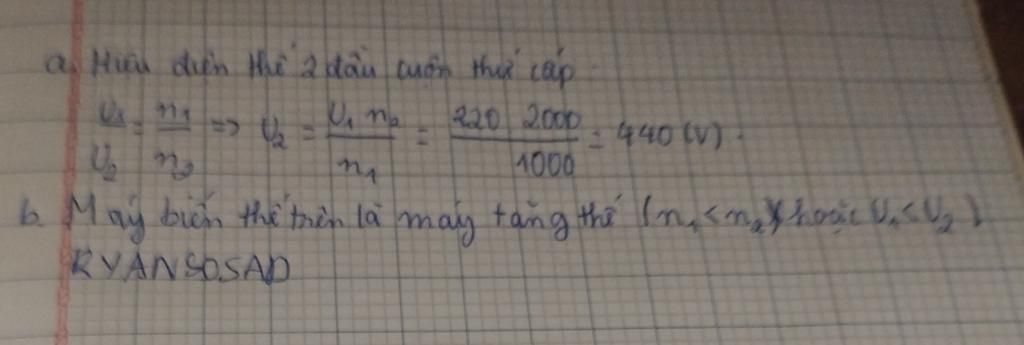 a, Hiệu điện thế 2 đầu cuộn thứ cấp
U₁/U₂ = n₁/n₂ => U₂ = U₁ n₂/n₁ = 220 2000/1000 = 440 (V).
b. Máy biến thế trên là máy tăng thế (n₁ < n₂) (hoặc U₁ < U₂)
RYANSOSAD